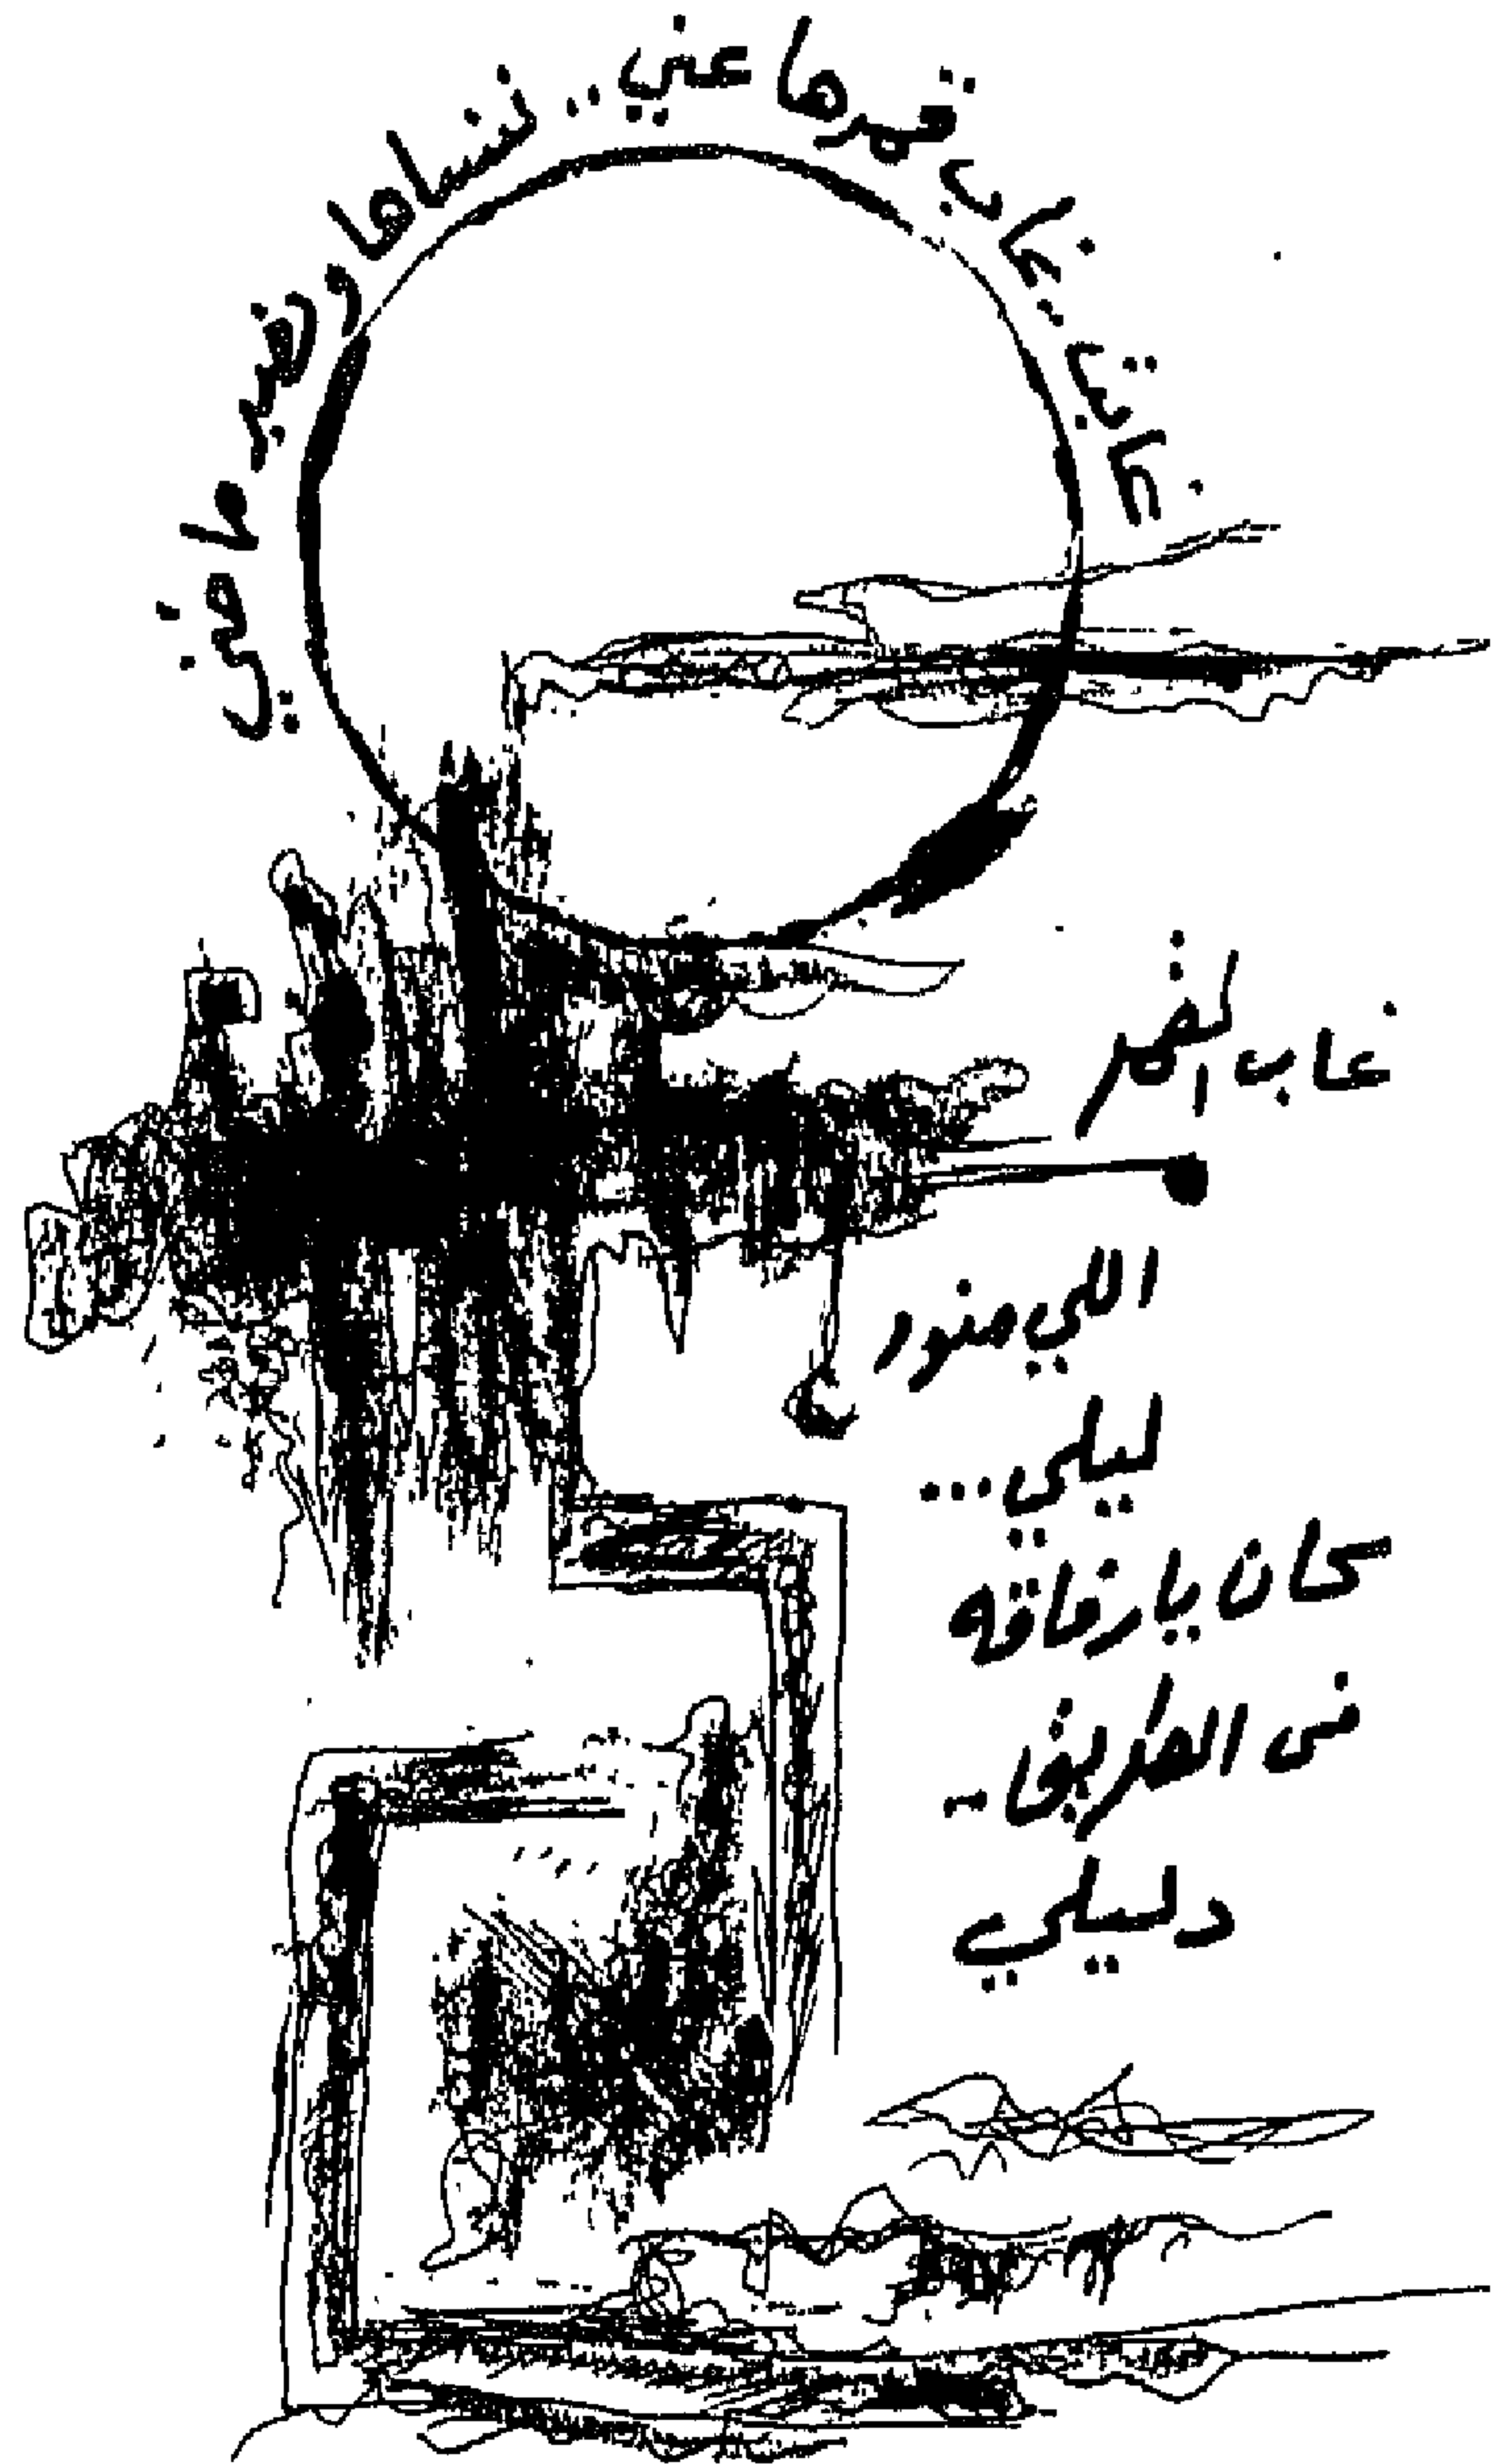 غابت .. غاب قمرها عني .. ننساها و نضير ماضي
غاب القمر
اللي منور
ليلي ...
كان يا رفاقه
في الطريق ..
دليلي